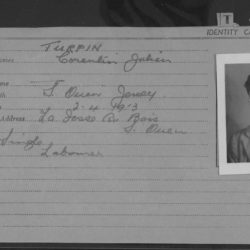 IDENTITY CA
TURPIN
Corentin Julien
S. Ouen Jersey.
2-4-1913
Address La Fosse Au Bois
S. Ouen
Single
Labourer